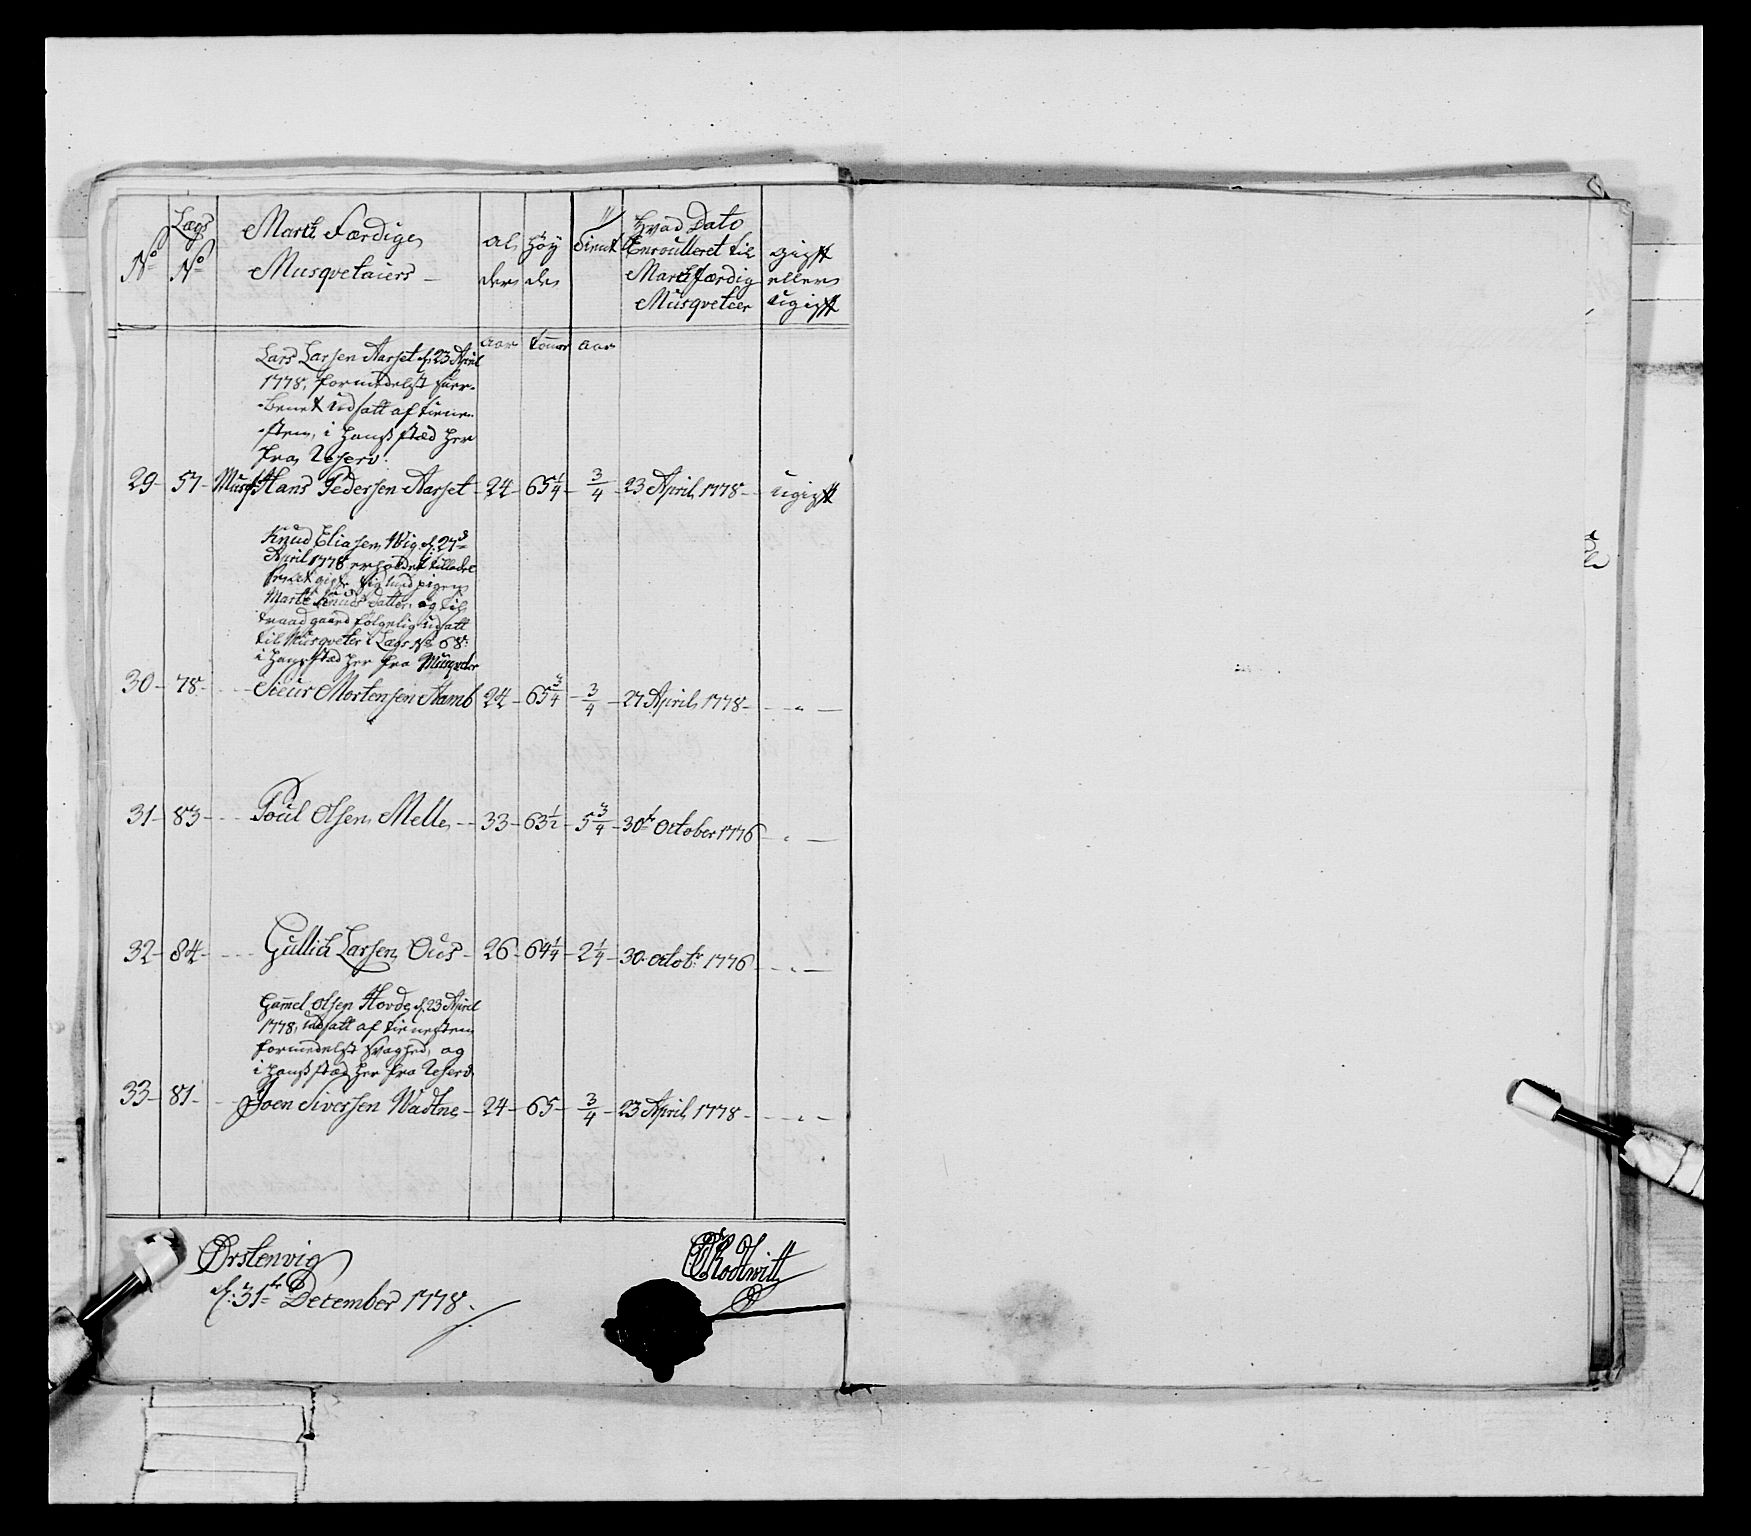 No
Lægs No
March Færdige
Musqvetaiers
Al
der
Høy
de
tient
Hvad Dato
Enroulleret til
March færdig
Musqveteer
gift
eller
ugift
Aar Tommer Aar
Lars Larsen Aarset d. 23 April
1778, formedelst
benet udsatt af tiene-
sten, i hans stæd her
fra Reserv:
29 - 57 - Musq: Hans Pedersen Aarset - 24 - 65 1/4 - 3/4 - 23 April 1778 - ugift
Knud Eliasen Wig d. 27de
April 1778 erholdet tilladel
sig med pigen
Marte Knuds datter, og til
traad gaard følgelig udsatt
til Musqveter i Lægs No 68:
i hans stæd her fra Musqveter
30 - 78 - - - Sieur Mortensen Hamb 24 - 65 3/4 - 3/4 - 27 April 1778 - - " -
31 - 83 - - - Poul Olsen Melle - 33 - 63 1/2 - 5 3/4 - 30te October 1776 - " -
32 - 84 - - - Gullich Larsen Ous - 26 - 64 1/4 - 2 1/4 - 30 Octobr: 1776 - - " -
Gammel Olsen Hovde d. 23 April
1778, udsatt af tienesten
formedelst Svaghed, og
i hans stæd her fra Reserv.
33 - 81 - - - Joen Siversen Wadtne - 24 - 65 - 3/4 - 23 April 1778 - - " -
Ørstenvig
d: 31te December 1778.
Rodtwitt